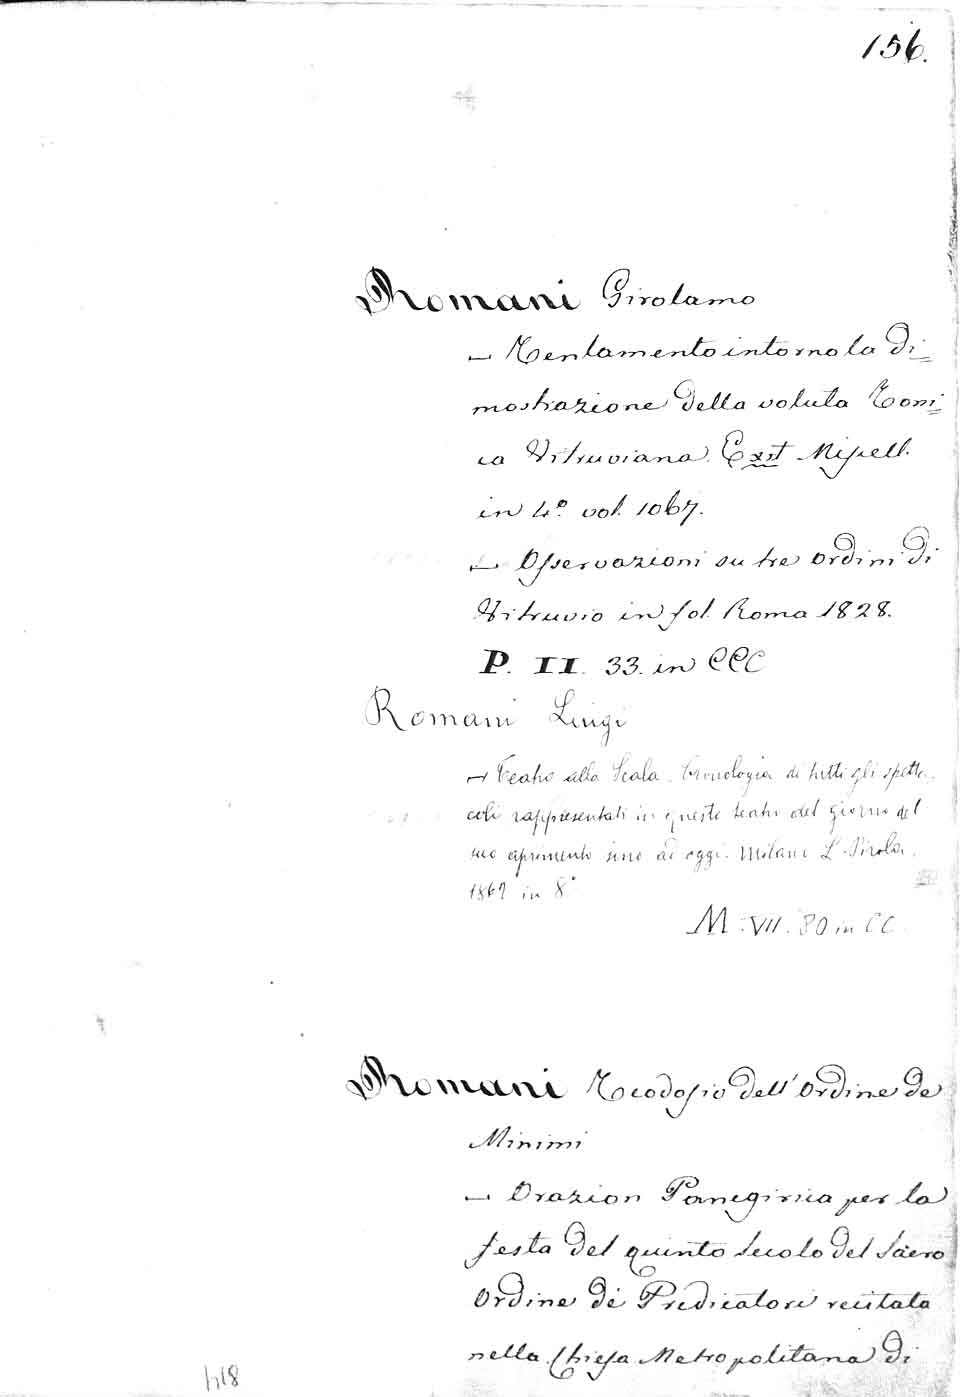 156.
Romani Girolamo
— Tentamento intorno la di=
mostrazione della voluta Ioni=
ca Vitruviana. Exst Miscell.
in 4.º vol. 1067.
— Osservazioni su tre ordini di
Vitruvio in fol. Roma 1828.
P. II. 33. in CCC
Romani Luigi
— Teatro alla Scala. Cronologia di tutti gli spetta-
coli rappresentati in questo teatro dal giorno del
suo aprimento sino ad oggi. Milano L. Pirola.
1862 in 8°
M. VII. 80 in CC.
Romani Teodosio dell'Ordine de
Minimi
— Orazion Panegirica per la
festa del quinto Secolo del Sacro
Ordine dé Predicatori recitata
nella Chiesa Metropolitana di
814